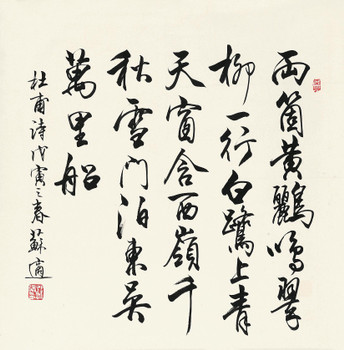 两箇黄鸝鸣翠
柳一行白鷺上青
天窗含西嶺千
秋雪门泊東吴
萬里船
杜甫诗戊寅之春蘇適